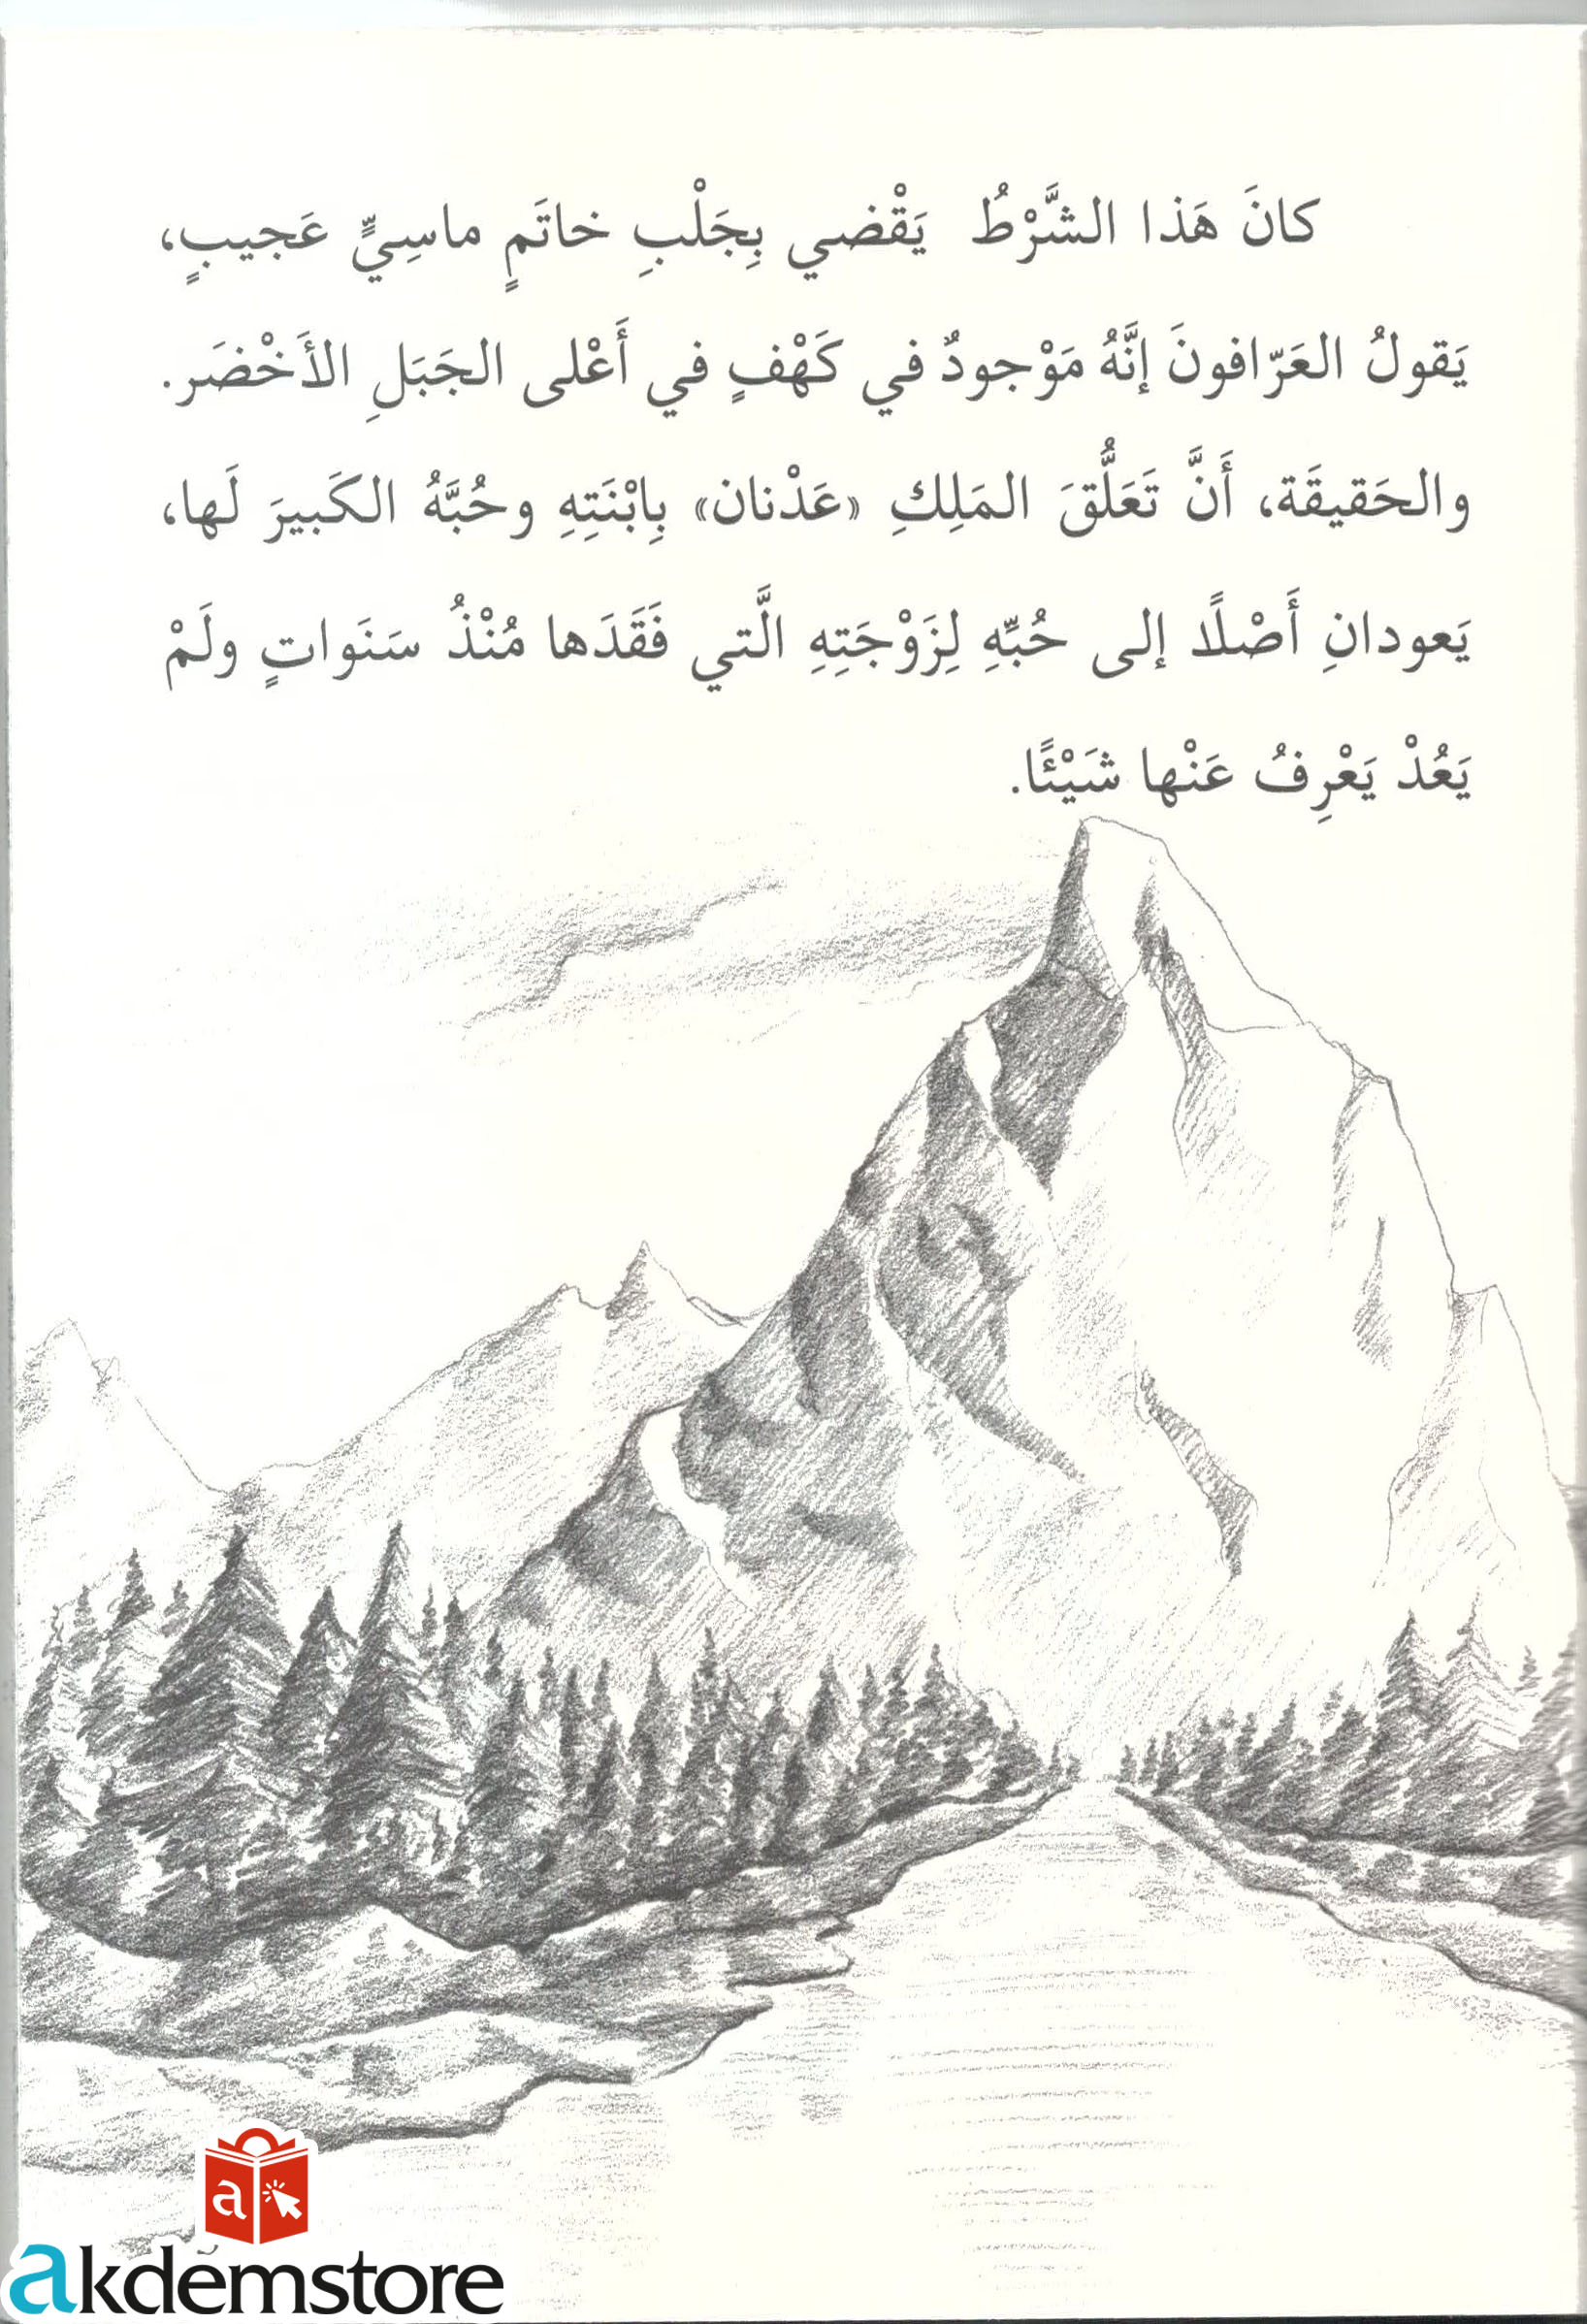 كانَ هَذا الشَّرْطُ يَقْضي بِجَلْبِ خاتَمٍ ماسِيٍّ عَجيبٍ،
يَقولُ العَرّافونَ إنَّهُ مَوْجودٌ في كَهْفٍ في أَعْلى الجَبَلِ الأَخْضَر.
والحَقيقَة، أَنَّ تَعَلُّقَ المَلِكِ «عَدْنان» بِابْنَتِهِ وحُبَّهُ الكَبيرَ لَها،
يَعودانِ أَصْلًا إلى حُبِّهِ لِزَوْجَتِهِ الَّتي فَقَدَها مُنْذُ سَنَواتٍ ولَمْ
يَعُدْ يَعْرِفُ عَنْها شَيْئًا.
a
akdemstore